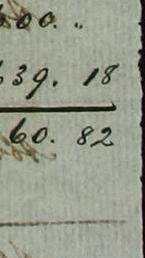 600. "
539. 18
60. 82